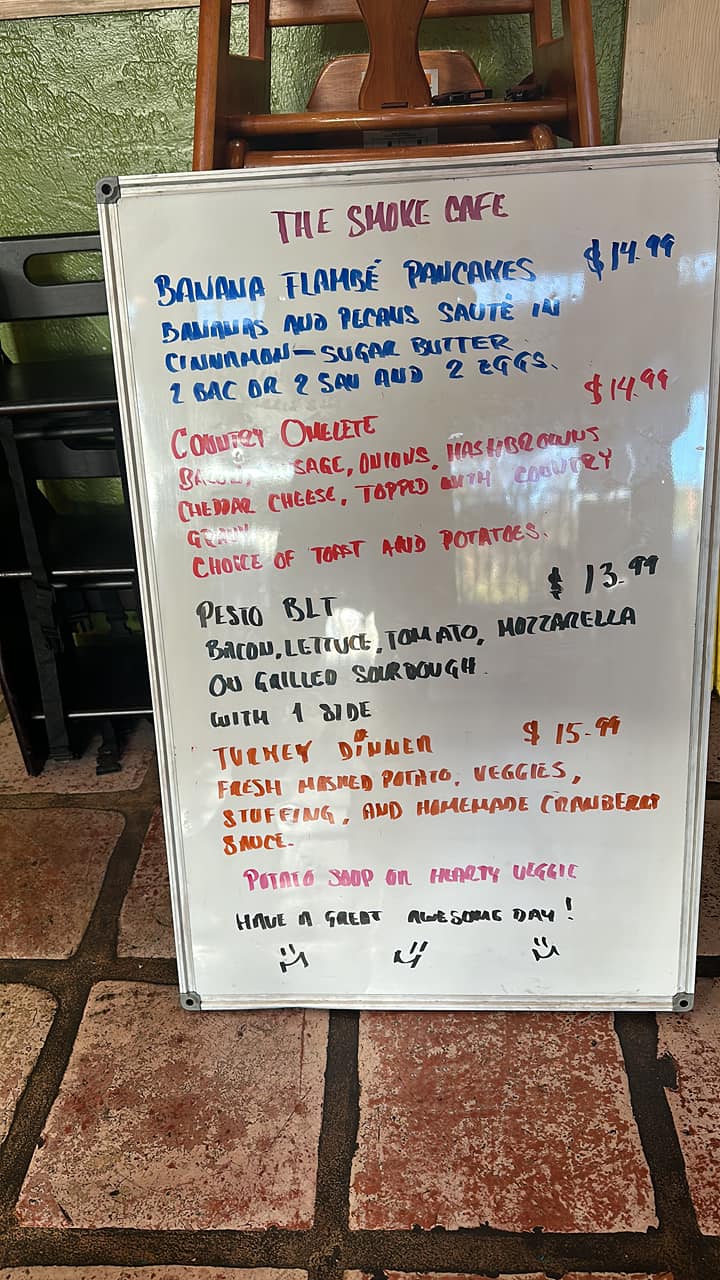 THE SMOKE CAFE
BANANA FLAMBÉ PANCAKES $14.99
BANANAS AND PECANS SAUTÉ IN
CINNAMON-SUGAR BUTTER
2 BAC OR 2 SAU AND 2 EGGS.
COUNTRY OMELETE $14.99
ONIONS, HASHBROWNS
CHEDDAR CHEESE, TOPPED WITH COUNTRY
CHOICE OF TOAST AND POTATOES.
PESTO BLT $13.99
BACON, LETTUCE, TOMATO, MOZZARELLA
ON GRILLED SOURDOUGH.
WITH 1 SIDE
TURKEY DINNER $15.99
FRESH MASHED POTATO, VEGGIES,
STUFFING, AND HOMEMADE CRANBERRY
SAUCE.
POTATO SOUP OR HEARTY VEGGIE
HAVE A GREAT AWESOME DAY!